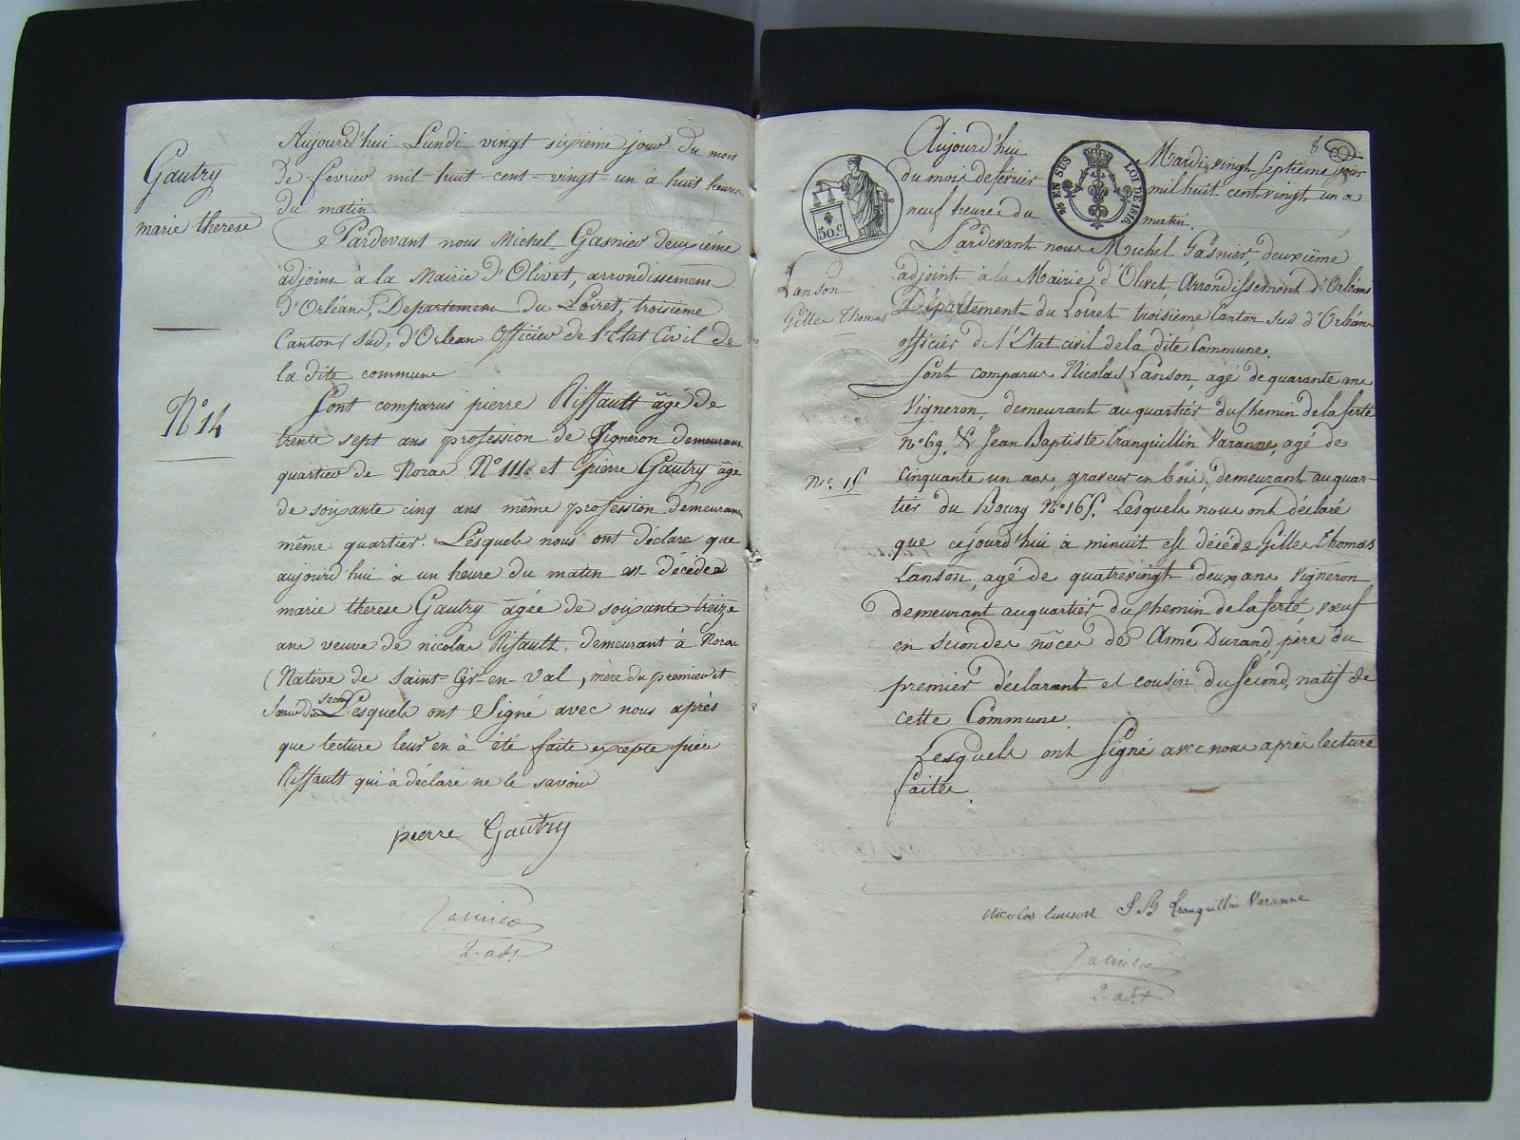 Gautry
marie therese
N° 14
Aujourd'hui Lundi vingt sixieme jour du mois
de fevrier mil huit cent vingt un à huit heures
du matin
Pardevant nous Michel Gasnier deuxiéme
adjoint à la Mairie d'Olivet, arrondissement
D'Orléans, Departement du Loiret, troisieme
Canton Sud, d'Orlean Officier de l'Etat Civil de
la dite commune
Sont comparus pierre Riffault âgé de
trente sept ans profession de Vigneron demeurant
quartier de Noras N° 111 et pierre Gautry âgé
de soixante cinq ans même profession demeurant
même quartier. Lesquels nous ont déclaré que
aujourd'hui à un heure du matin est décédée
marie therese Gautry âgée de soixante treize
ans veuve de nicolas Rifault, demeurant à Noras
Native de Saint-Cyr-en-Val, mère du premier et
Soeur du second Lesquels ont Signé avec nous après
que lecture leur en à été faite excepte pierre
Riffault qui à déclaré ne le savoir
pierre Gautry
2. adt
8
Aujourd'hui Mardi vingt Septième jour
du mois de fevrier mil huit cent vingt un a
neuf heures du matin.
50 c
96 EN SUS
LOI DE 1816
Lanson
Gilles Thomas
N° 15
Pardevant nous Michel Gasnier, deuxième
adjoint à la Mairie d'Olivet, Arrondissement d'Orléans
Département du Loiret troisieme Canton Sud d'Orléans
officier de l'Etat civil de la dite Commune.
Sont comparus Nicolas Lanson, agé de quarante ans
Vigneron, demeurant au quartier du Chemin de la ferté
N° 69. & Jean Baptiste Tranquillin Varanne, agé de
Cinquante un ans, graveur en bois, demeurant au quar-
tier du Bourg N° 165. Lesquels nous ont déclaré
que cejourd'hui à minuit est décédé Gilles Thomas
Lanson, agé de quatrevingt deux ans Vigneron
demeurant au quartier du Chemin de la ferté, veuf
en secondes nôces de Anne Durand, père du
premier déclarant et cousin du Second, natif de
cette Commune.
Lesquels ont Signé avec nous après lecture
faite.
nicolas lanson J. B tranquillin Varanne
2. adt